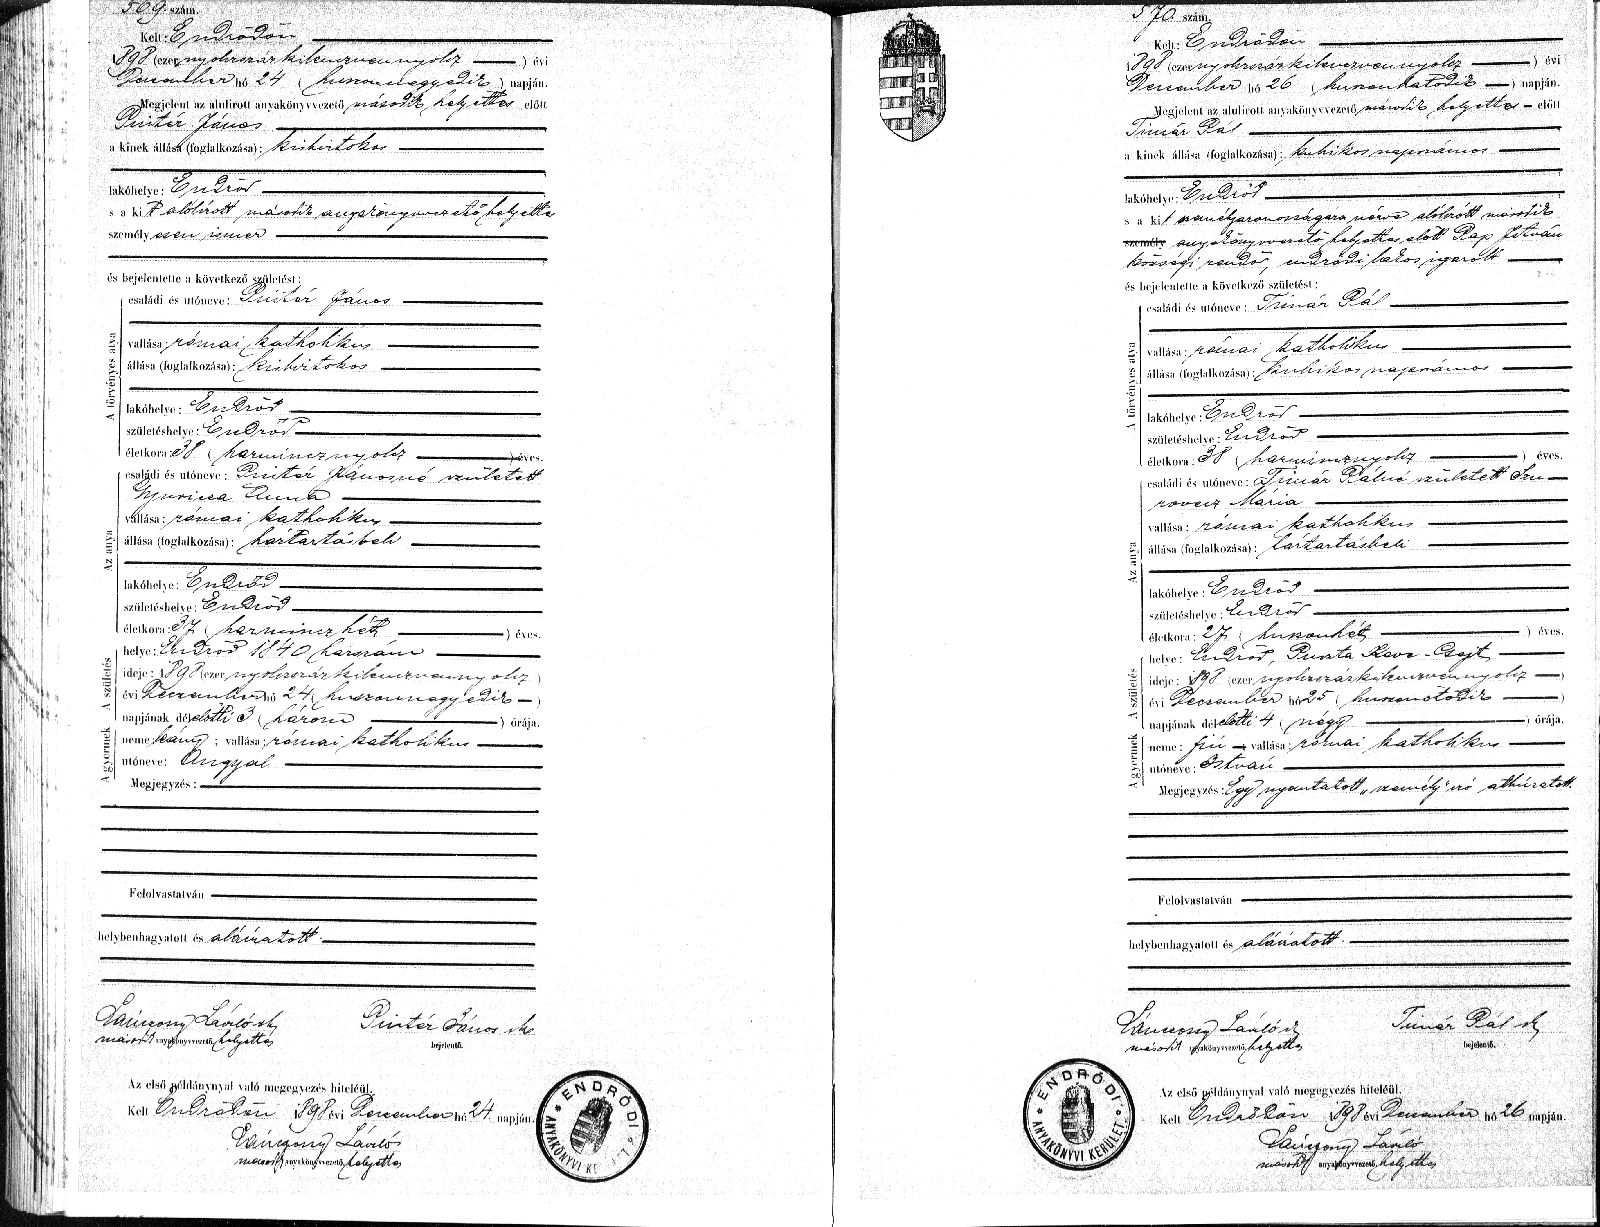 569. szám.
Kelt: Endrődön
1898 (ezernyolczszázkilenczvennyolcz) évi
December hó 24 (huszonnegyedik) napján.
Megjelent az alulirott anyakönyvvezető második helyettes előtt
Pintér János
a kinek állása (foglalkozása): kisbirtokos
lakóhelye: Endrőd
s a kit alólirott második anyakönyvvezető helyettes
személyesen ismer
és bejelentette a következő születést:
A törvényes atya
családi és utóneve: Pintér János
vallása: római katholikus
állása (foglalkozása): kisbirtokos
lakóhelye: Endrőd
születéshelye: Endrőd
életkora: 38 (harmincznyolcz) éves.
Az anya
családi és utóneve: Pintér Jánosné született
Gyuricza Anna
vallása: római katholikus
állása (foglalkozása): háztartásbeli
lakóhelye: Endrőd
születéshelye: Endrőd
életkora: 37 (harminczhét) éves.
A születés
helye: Endrőd 1840 házszám
ideje: 1898 (ezernyolczszázkilenczvennyolcz)
évi December hó 24 (huszonnegyedik)
napjának délelőtti 3 (három) órája.
A gyermek
neme: leány; vallása: római katholikus
utóneve: Angyal
Megjegyzés:
Felolvastatván
helybenhagyatott és aláiratott.
László Pintér János
második anyakönyvvezető, helyettes bejelentő.
Az első példánynyal való megegyezés hiteléül.
Kelt Endrődön 1898 évi December hó 24. napján.
László
második anyakönyvvezető, helyettes
ENDRŐDI
ANYAKÖNYVI
570. szám.
Kelt: Endrődön
1898 (ezernyolczszázkilenczvennyolcz) évi
December hó 26 (huszonhatodik) napján.
Megjelent az alulirott anyakönyvvezető második helyettes előtt
Timár Pál
a kinek állása (foglalkozása): kubikos napszámos
lakóhelye: Endrőd
s a kit személyazonosságára nézve alólirott második
személy anyakönyvvezető helyettes előtt Pap István
községi rendőr, endrődi lakos igazolt
és bejelentette a következő születést:
A törvényes atya
családi és utóneve: Timár Pál
vallása: római katholikus
állása (foglalkozása): kubikos napszámos
lakóhelye: Endrőd
születéshelye: Endrőd
életkora: 38 (harmincznyolcz) éves.
Az anya
családi és utóneve: Timár Pálné született
Mária
vallása: római katholikus
állása (foglalkozása): háztartásbeli
lakóhelye: Endrőd
születéshelye: Endrőd
életkora: 27 (huszonhét) éves.
A születés
helye: Endrőd, Puszta Csejt
ideje: 1898 (ezernyolczszázkilenczvennyolcz)
évi December hó 25 (huszonötödik)
napjának délelőtti 4 (négy) órája.
A gyermek
neme: fiú vallása: római katholikus
utóneve: István
Megjegyzés: Egy nyomtatott „személy" szó áthúzatott.
Felolvastatván
helybenhagyatott és aláiratott.
László Timár Pál
második anyakönyvvezető, helyettes bejelentő.
Az első példánynyal való megegyezés hiteléül.
Kelt Endrődön 1898 évi December hó 26 napján.
László
második anyakönyvvezető, helyettes
ENDRŐDI
ANYAKÖNYVI KERÜLET